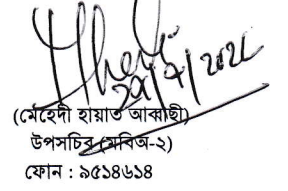 (মেহেদী হায়াত আব্বাছী)
উপসচিব (মবিঅ-২)
ফোন : ৯৫১৪৬১৪